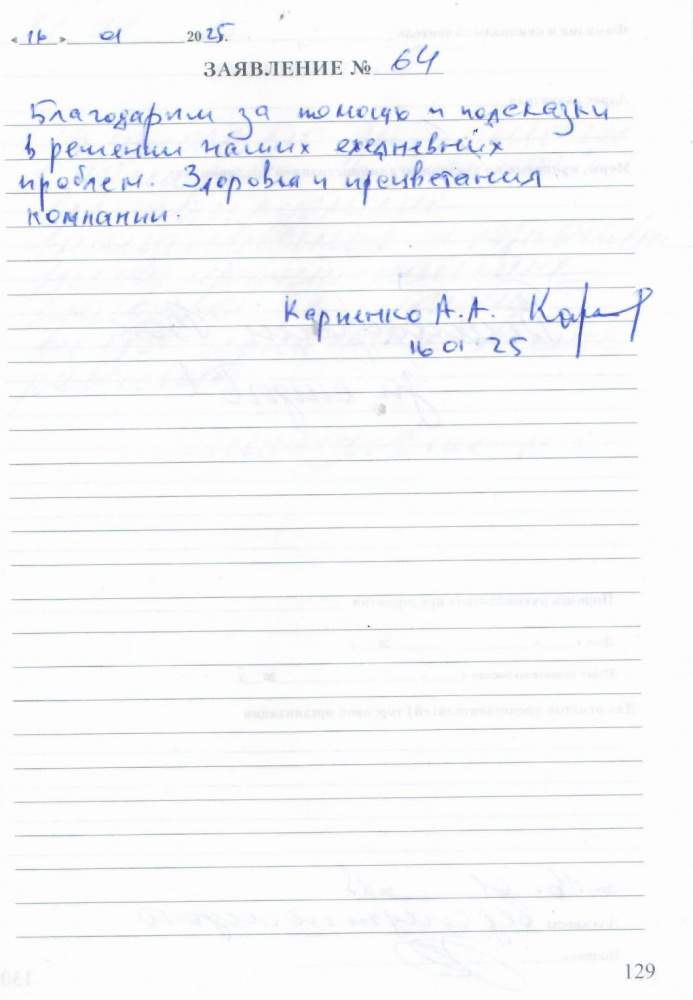 « 16 » 01 2025.
ЗАЯВЛЕНИЕ № 64
Благодарим за помощь и подсказки
в решении наших ежедневных
проблем. Здоровья и процветания
компании.
Карпенко А.А.
16 01 25
129